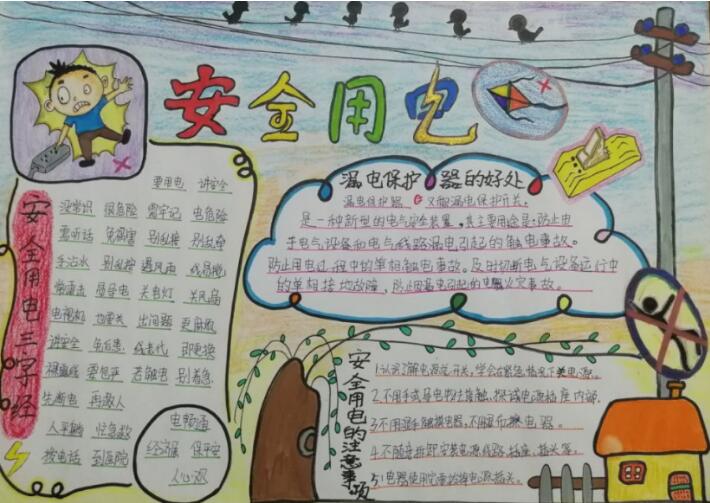 安全用电
安全用电三字经
要用电 讲安全
没常识 很危险 需牢记 电危险
需听话 免祸害 别乱接 别乱牵
手沾水 别乱接 遇风雨 线易脱
易导电 关电灯 关风扇
电视机 也要关 出问题
讲安全 线老化 即更换
要想早 若触电 别着急
先断电 再救人
人平躺 忙急救
拨电话 到医院
电畅通
经济强 保平安
人心欢
漏电保护器的好处
漏电保护器 又称漏电保护开关,
是一种新型的电气安全装置,其主要用途是:防止由
于电气设备和电气线路漏电引起的触电事故。
防止用电过程中的单相触电事故。及时切断电气设备运行中
的单相接地故障,防止因漏电引起的电气火灾事故。
安全用电的注意事项
1.认识了解电源总开关,学会在紧急情况下关电源。
2.不用手或导电物去接触、探试电源插座内部。
3.不用湿手触摸电器,不用湿布擦电器。
4.不随意拆卸安装电源线路、插座、插头等。
5.电器使用完毕要拔电源插头。